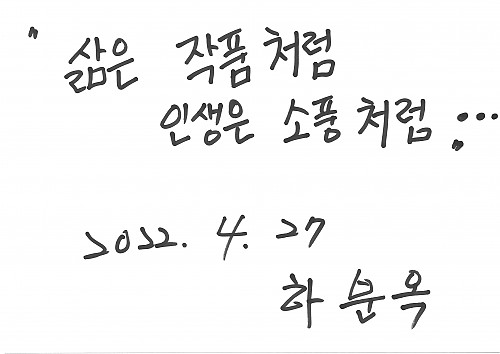 "삶은 작품처럼
인생은 소풍처럼..."
2022. 4. 27
하분옥